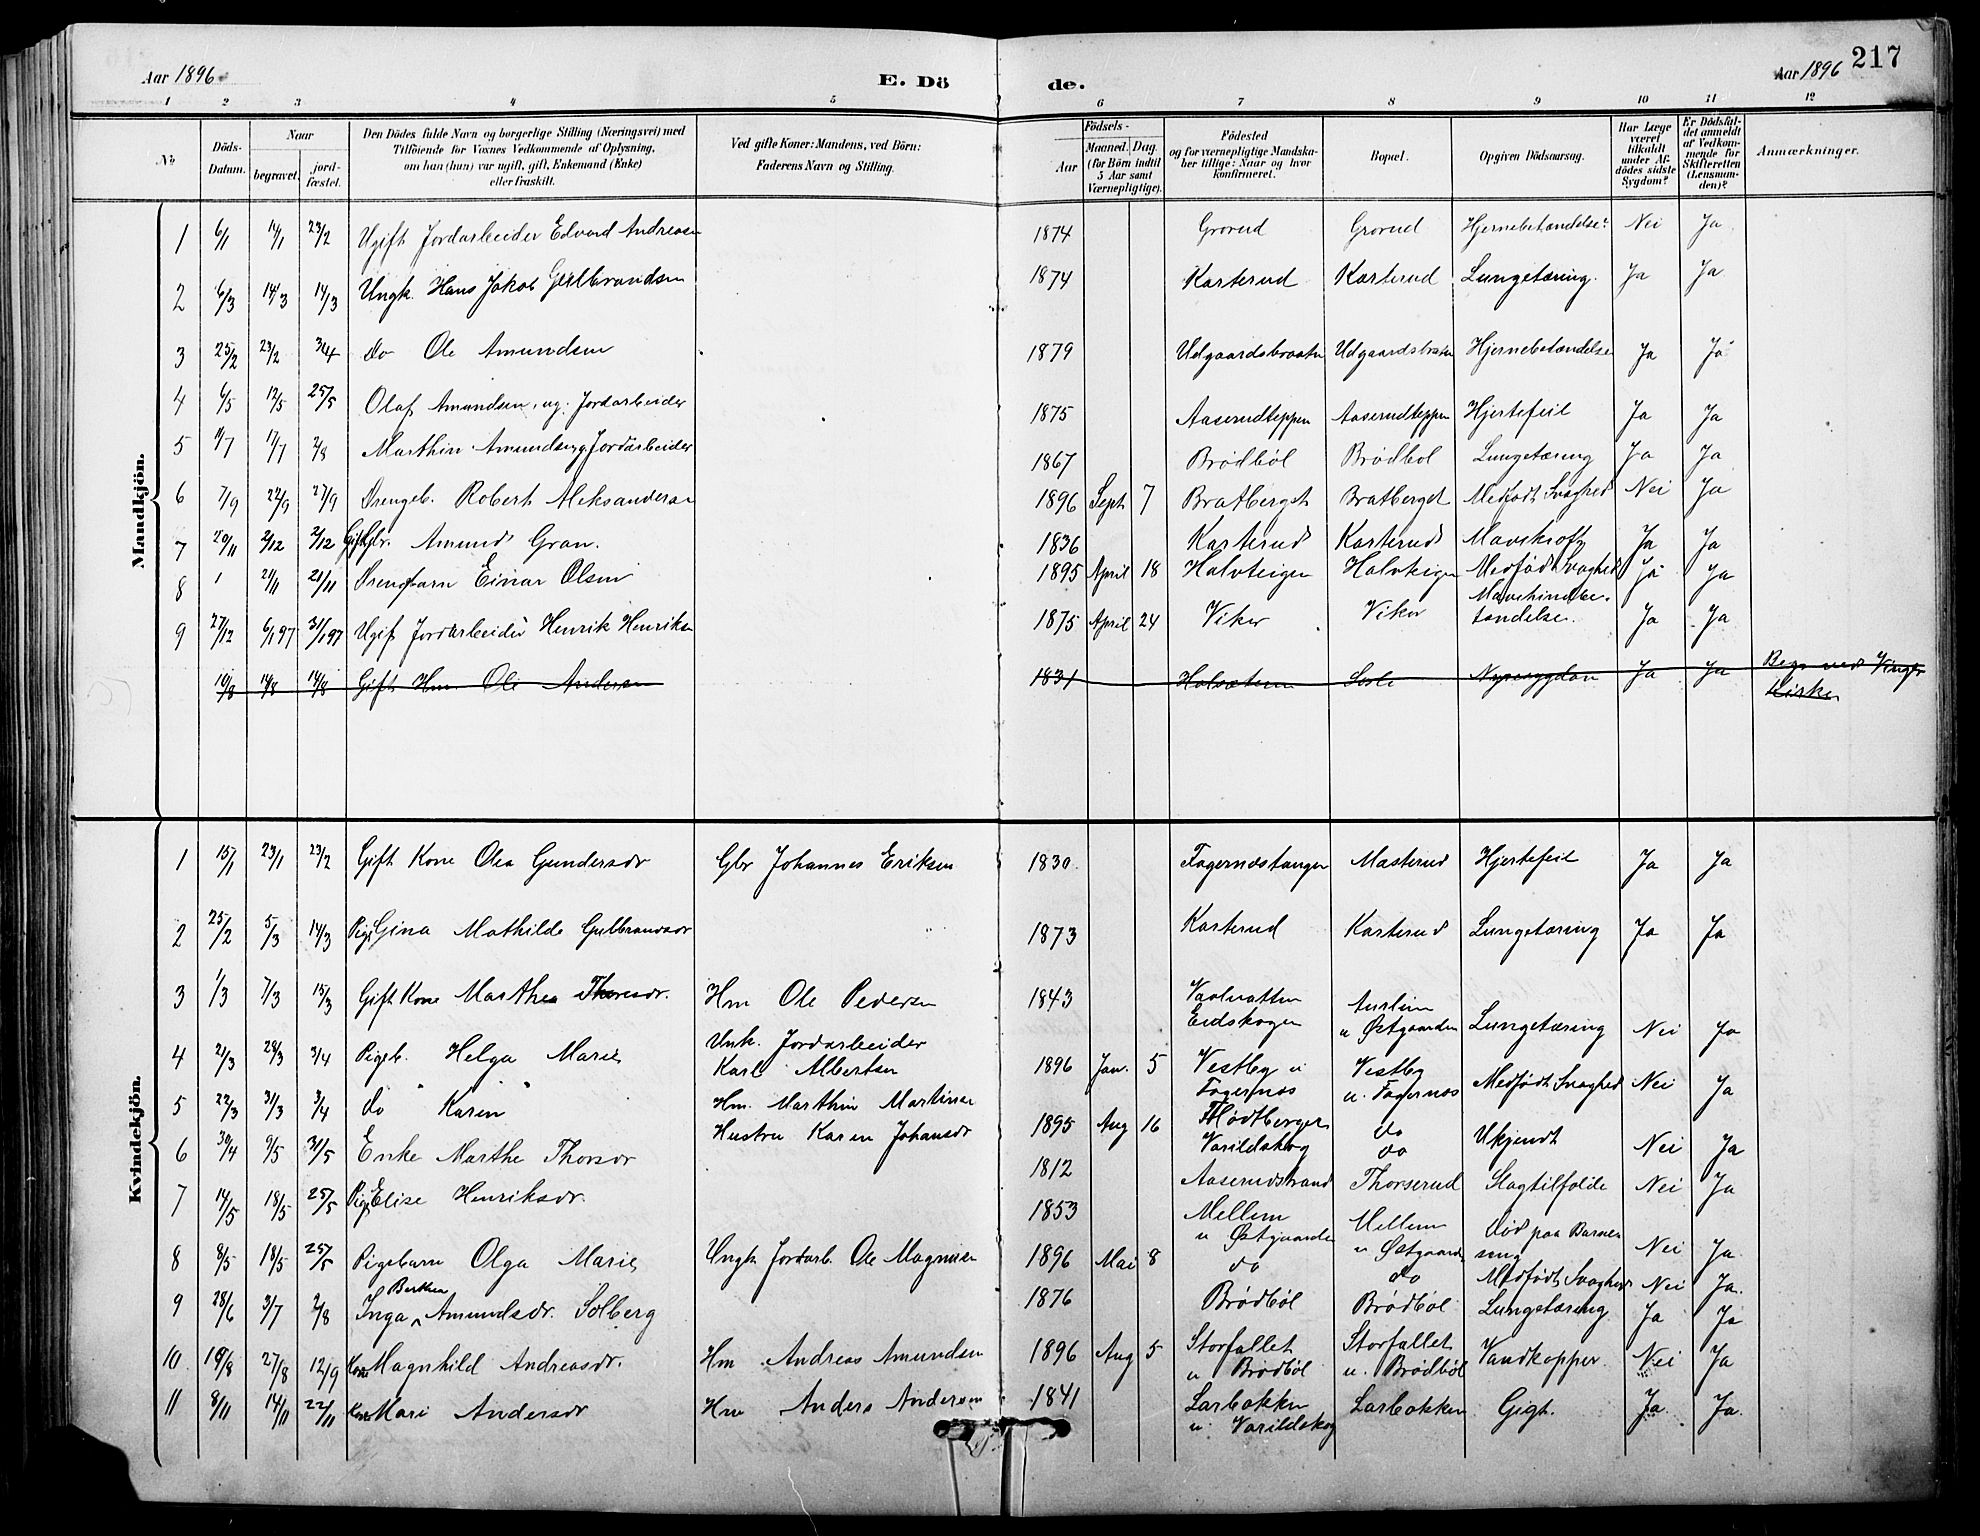 Aar 1896 E. Dö de. Aar 1896 217
1 2 3 4 5 6 7 8 9 10 11 12
No Döds-Datum. Naar begravet. jord-fæstet. Den Dödes fulde Navn og borgerlige Stilling (Næringsvei) med Tilföiende for Voxnes Vedkommende af Oplysning, om han (hun) var ugift, gift, Enkemand (Enke) eller fraskilt. Ved gifte Koner: Mandens, ved Börn: Faderens Navn og Stilling. Födsels- Aar Maaned. Dag. (for Börn indtil 5 Aar samt Værnepligtige). Födested og for værnepligtige Mandskaber tillige: Naar og hvor konfirmeret. Bopæl. Opgiven Dödsaarsag. Har Læge været tilkaldt under Afdödes sidste Sygdom? Er Dödsfaldet anmeldt af Vedkommende for Skifteretten (Lensmanden)? Anmærkninger.
Mandkjön.
1 6/1 14/1 23/2 Ugift Jordarbeider Edvard Andreasen 1874 Grorud Grorud Hjernebetændelse Nei Ja
2 6/3 14/3 14/3 Ungk. Hans Jakob Gulbrandsen 1874 Kasterud Kasterud Lungetæring. Ja Ja
3 25/2 23/2 3/4 do Ole Amundsen 1879 Udgaardsbraaten Udgaardsbraten Hjernebetændelse Ja Ja
4 6/5 12/5 25/5 Olaf Amundsen, ug. Jordarbeider 1875 Aaserudteppen Aaserudteppen Hjertefeil Ja Ja
5 11/7 17/7 2/8 Marthin Amundsen ug Jordarbeider 1867 Brödböl Brödbol Lungetæring Ja Ja
6 7/9 22/9 27/9 Drengeb. Robert Aleksandersen 1896 Sept 7 Bratberget Bratberget Medfödt Svaghed Nei Ja
7 20/11 2/12 2/12 Gift Gbr. Amund Gran. 1836 Kasterud Kasterud Mavekræft Ja Ja
8 1 21/11 21/11 Drengbarn Einar Olsen 1895 April 18 Halvteigen Halvteigen Medfödt Svaghed Ja Ja
9 27/12 6/1 97 31/1 97 Ugif Jordarbeider Henrik Henriksen 1875 April 24 Viker Viker Mavehindebe-
tændelse. Ja Ja
10/8 14/8 14/8 Gift Hm Ole Andersen 1831 Halsæteren Sæsle Nyresygdom Ja Ja Begr ved Vinger
Kirke
Kvindekjön.
1 15/1 23/1 23/2 Gift Kone Olea Gundersdr Gbr Johannes Eriksen 1830. Fagernæstangen Masterud Hjertefeil Ja Ja
2 25/2 5/3 14/3 Pige Gina Mathilde Gulbrandsdr 1873 Kasterud Kasterud Lungetæring Ja Ja
3 1/3 7/3 15/3 Gift Kone Marthea Thoresdr. Hm Ole Pedersen 1843 Vaalnatten
Eidskogen
u Østgaarden Lungetæring Nei Ja
4 2/3 28/3 3/4 Pigeb. Helga Marie Unk. Jordarbeider
Karl Albertsen 1896 Jan. 5 Vestby u
Fagernæs Vestby
u. Fagernæs Medfödt Svaghed Nei Ja
5 22/3 31/3 3/4 do Karen Hm. Marthin Martinsen
Hustru Karen Johansdr 1895 Aug 16 Flödtberget
Varildskog do
do Ukjendt Nei Ja
6 30/4 9/5 31/5 Enke Marthe Thorsdr 1812 Aaserudstrand Thorserud Slagtilfælde Nei Ja
7 14/5 18/5 25/5 Pige Elise Henriksdr. 1853 Mellem
u Østgaarden Mellem
u Østgaarden Död paa Barsel-
seng Nei Ja
8 8/5 18/5 25/5 Pigebarn Olga Marie Ungk Jordarb. Ole Magnusen 1896 Mai 8 do do Medfödt Svaghed Nei Ja.
9 28/6 3/7 2/8 Inga Amundsdr. Solberg 1876 Brödböl Brödböl Lungetæring Ja Ja
10 19/8 27/8 12/9 Magnhild Andreasdr. Hm Andreas Amundsen 1896 Aug 5 Storfallet
u Brödböl Storfallet
u. Brödböl Vandkopper. Nei Ja
11 8/11 14/11 22/11 Kone Mari Andersdr Hm Anders Andersen 1841 Larbakken
u Varildskog Larbakken Gigt. Ja Ja.